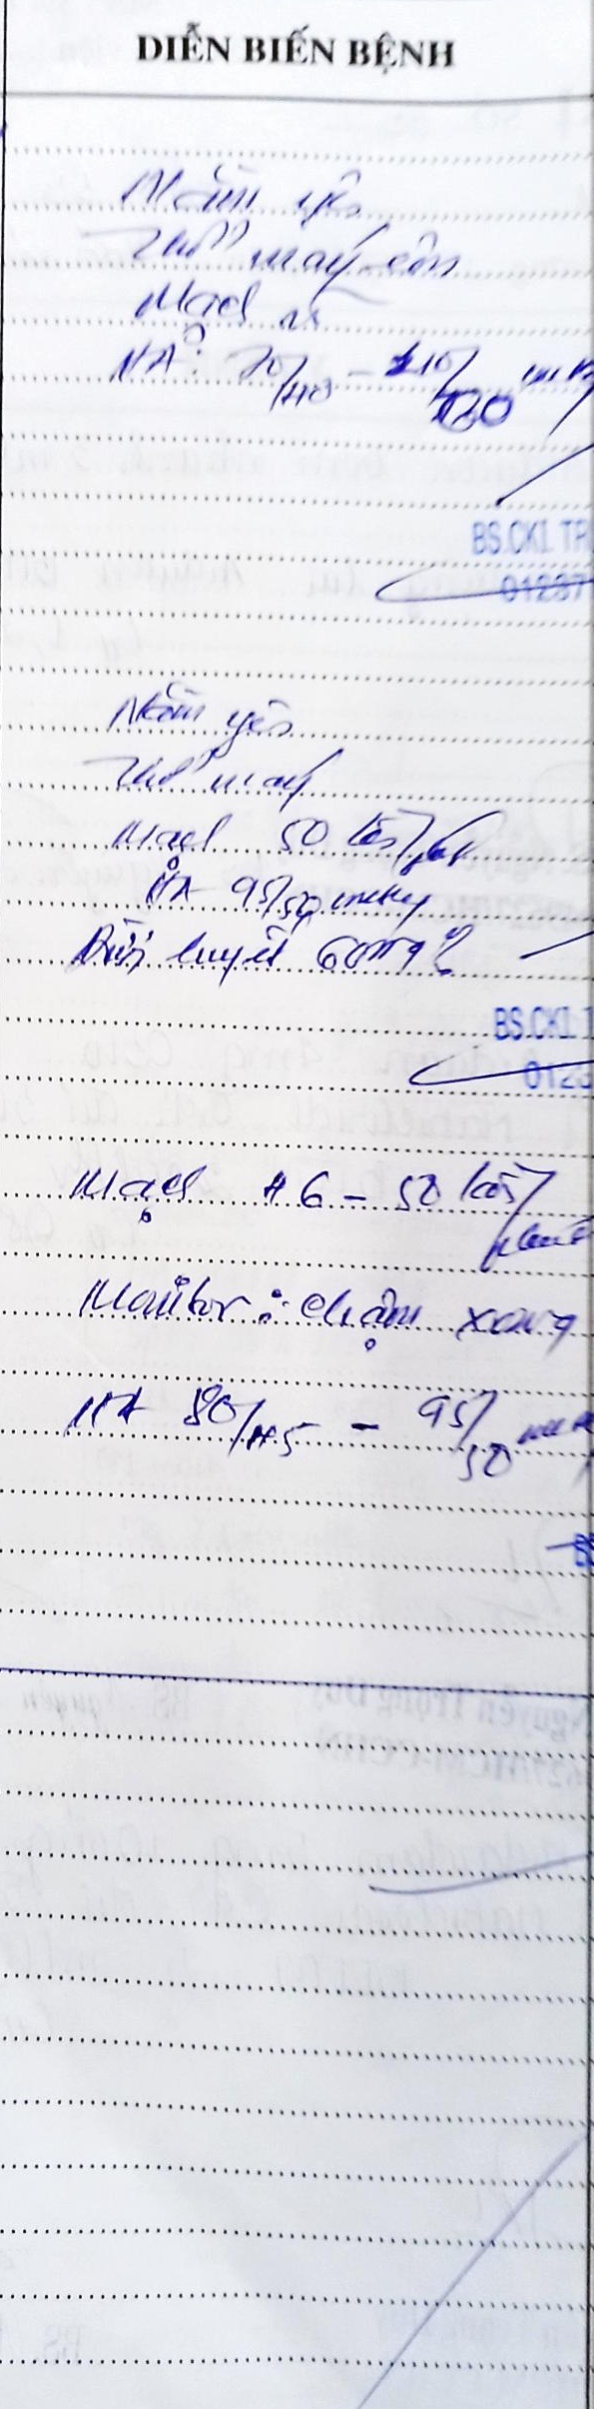 DIỄN BIẾN BỆNH
Nằm yên
Thở máy
Mạch rõ
HA: 70/40 - 110/60
BS.CKI. TR
01237
Nằm yên
Thở máy
Mạch 50 lần/phút
HA 95/50 mmHg
BS.CKI. T
0123
Mạch 46 - 50 lần/
phút
Monitor: chậm xoang
HA 80/45 - 95/50